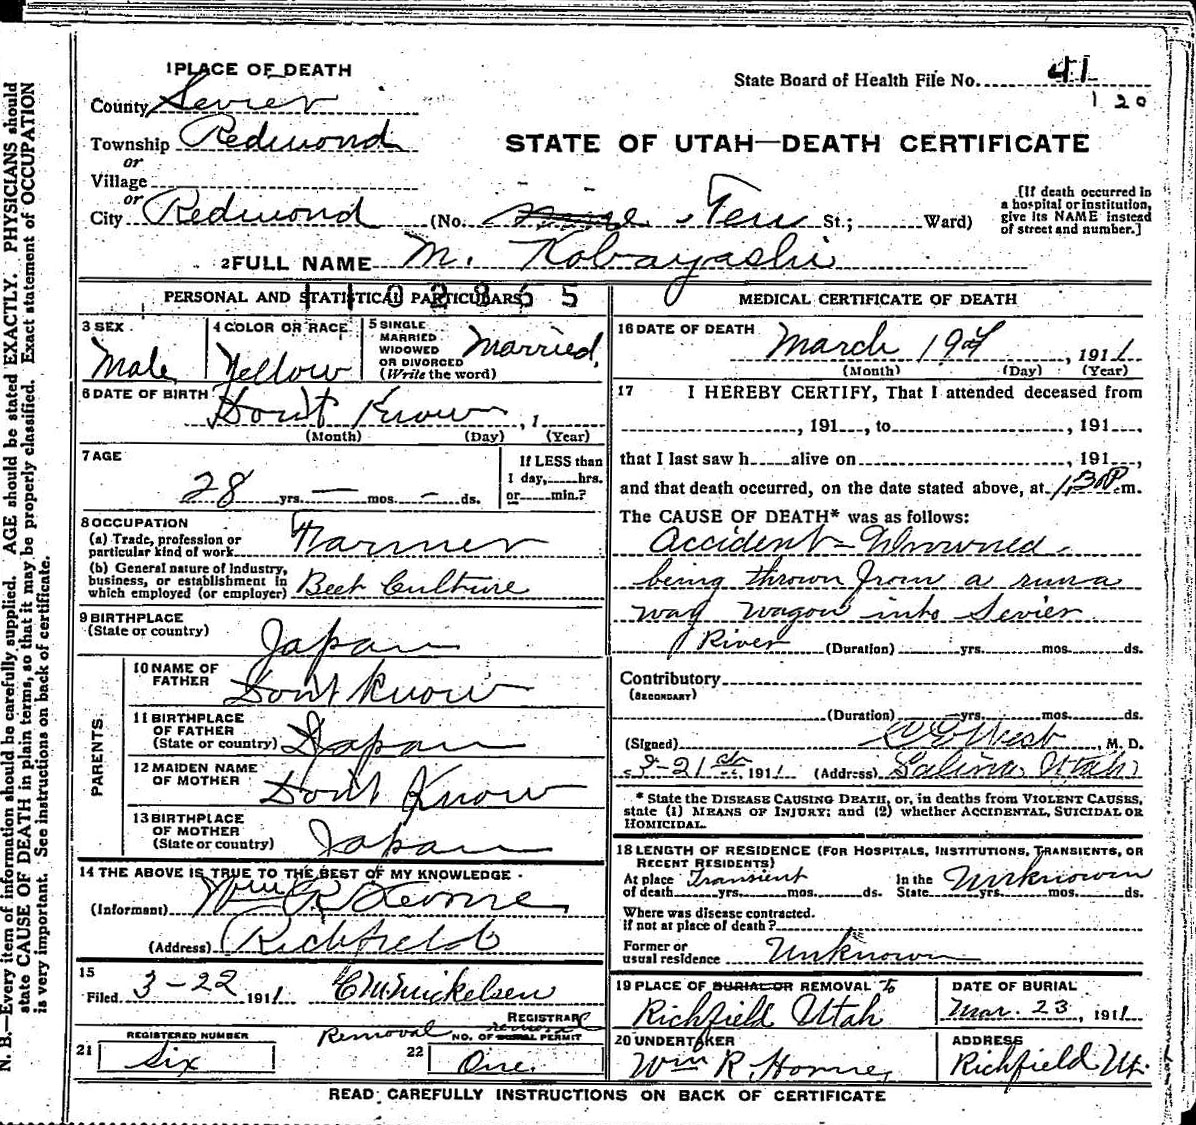 1 PLACE OF DEATH
State Board of Health File No. 41
120
County Sevier
Township Redmond
STATE OF UTAH—DEATH CERTIFICATE
or
Village
or
City Redmond (No. St.; Ward)
[If death occurred in
a hospital or institution,
give its NAME instead
of street and number.]
2 FULL NAME M. Kobayashi
PERSONAL AND STATISTICAL PARTICULARS
3 SEX
Male
4 COLOR OR RACE
Yellow
5 SINGLE
MARRIED
WIDOWED
OR DIVORCED
(Write the word)
Married
6 DATE OF BIRTH
Don't Know , 1
(Month) (Day) (Year)
7 AGE
28 yrs. — mos. - ds.
If LESS than
1 day, hrs.
or min.?
8 OCCUPATION
(a) Trade, profession or
particular kind of work Farmer
(b) General nature of industry,
business, or establishment in
which employed (or employer) Beet Culture
9 BIRTHPLACE
(State or country)
Japan
PARENTS
10 NAME OF
FATHER
Don't Know
11 BIRTHPLACE
OF FATHER
(State or country) Japan
12 MAIDEN NAME
OF MOTHER
Don't Know
13 BIRTHPLACE
OF MOTHER
(State or country) Japan
14 THE ABOVE IS TRUE TO THE BEST OF MY KNOWLEDGE
(Informant) Wm R Horne
(Address) Richfield
15
Filed 3-22 1911 C M Mickelsen
REGISTRAR
REGISTERED NUMBER
21 Six
Removal
removal
NO. OF BURIAL PERMIT
22 One
MEDICAL CERTIFICATE OF DEATH
16 DATE OF DEATH
March 19th , 1911
(Month) (Day) (Year)
17 I HEREBY CERTIFY, That I attended deceased from
, 191 , to , 191 ,
that I last saw h alive on , 191 ,
and that death occurred, on the date stated above, at 1,30P m.
The CAUSE OF DEATH* was as follows:
Accident - Drowned -
being thrown from a runa
way wagon into Sevier
River (Duration) yrs. mos. ds.
Contributory
(SECONDARY)
(Duration) yrs. mos. ds.
(Signed) West , M. D.
3-21 1911 (Address) Salina Utah
* State the DISEASE CAUSING DEATH, or, in deaths from VIOLENT CAUSES,
state (1) MEANS OF INJURY; and (2) whether ACCIDENTAL, SUICIDAL OR
HOMICIDAL.
18 LENGTH OF RESIDENCE (FOR HOSPITALS, INSTITUTIONS, TRANSIENTS, OR
RECENT RESIDENTS)
At place Transient
of death yrs. mos. ds.
In the
State Unknown yrs. mos. ds.
Where was disease contracted.
if not at place of death?
Former or
usual residence Unknown
19 PLACE OF BURIAL OR REMOVAL to
Richfield Utah
DATE OF BURIAL
Mar. 23 , 1911
20 UNDERTAKER
Wm R. Horne,
ADDRESS
Richfield Ut.
READ CAREFULLY INSTRUCTIONS ON BACK OF CERTIFICATE
N. B.—Every item of information should be carefully supplied. AGE should be stated EXACTLY. PHYSICIANS should
state CAUSE OF DEATH in plain terms, so that it may be properly classified. Exact statement of OCCUPATION
is very important. See instructions on back of certificate.